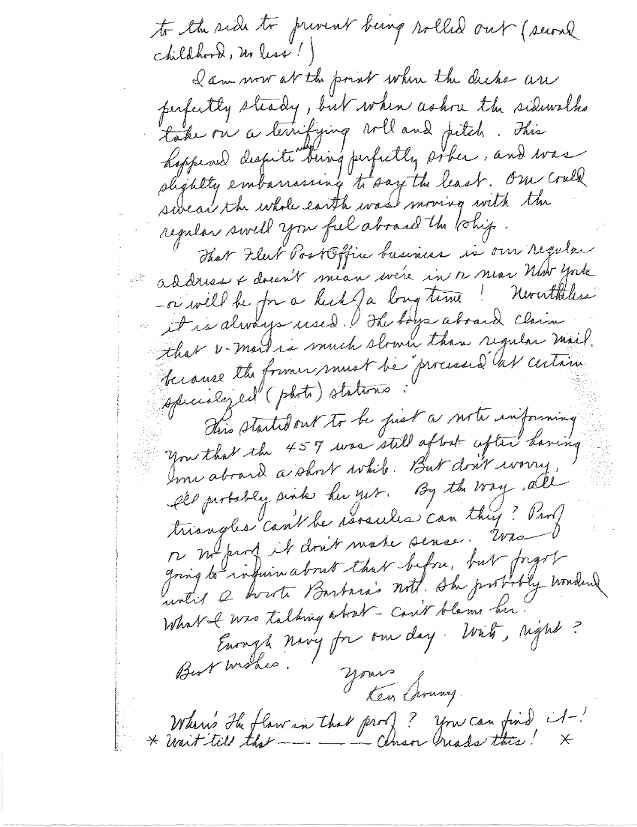 to the side to prevent being rolled out (second
childhood, no less!)
I am now at the point where the decks are
perfectly steady, but when ashore the sidewalks
take on a terrifying roll and pitch. This
happened despite my being perfectly sober, and was
slightly embarrassing to say the least. One could
swear the whole earth was moving with the
regular swell you feel aboard the ship.
That Fleet Post Office business is our regular
address & doesn't mean we're in or near New York
- or will be for a heck of a long time! Nevertheless
it is always used. The boys aboard claim
that V-Mail is much slower than regular mail.
because the former must be "processed" at certain
specialized (photo) stations.
This started out to be just a note informing
you that the 457 was still afloat after having
me aboard a short while. But don't worry,
I'll probably sink her yet. By the way, all
triangles can't be isosceles can they? Proof
or no proof it don't make sense. Was
going to inquire about that before, but forgot
until I wrote Barbara's note. She probably wondered
what I was talking about - can't blame her.
Enough Navy for one day. Write, right?
Best wishes.
Yours
Ken
Where's the flaw in that proof? You can find it-!
* Wait till that —— —— Censor reads this! *